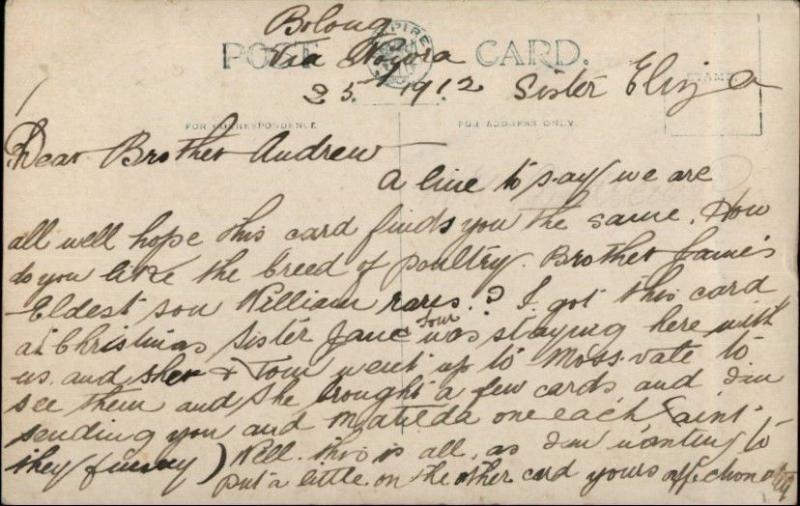 Bolong
POST CARD.
EMPIRE
Via Nowra
25 1912 Sister Eliza
STAMP
FOR CORRESPONDENCE
FOR ADDRESS ONLY.
Dear Brother Andrew
a line to say we are
all well hope this card finds you the same. How
do you like the breed of poultry. Brother James
Eldest son William rares.? I got this card
at Christmas Sister Jane & Tom was staying here with
us. and she & Tom went up to Mossvale to
see them and she brought a few cards and I am
sending you and Matilda one each (aint
they funny) Well. this is all, as I am wanting to
put a little on the other card yours affectionately